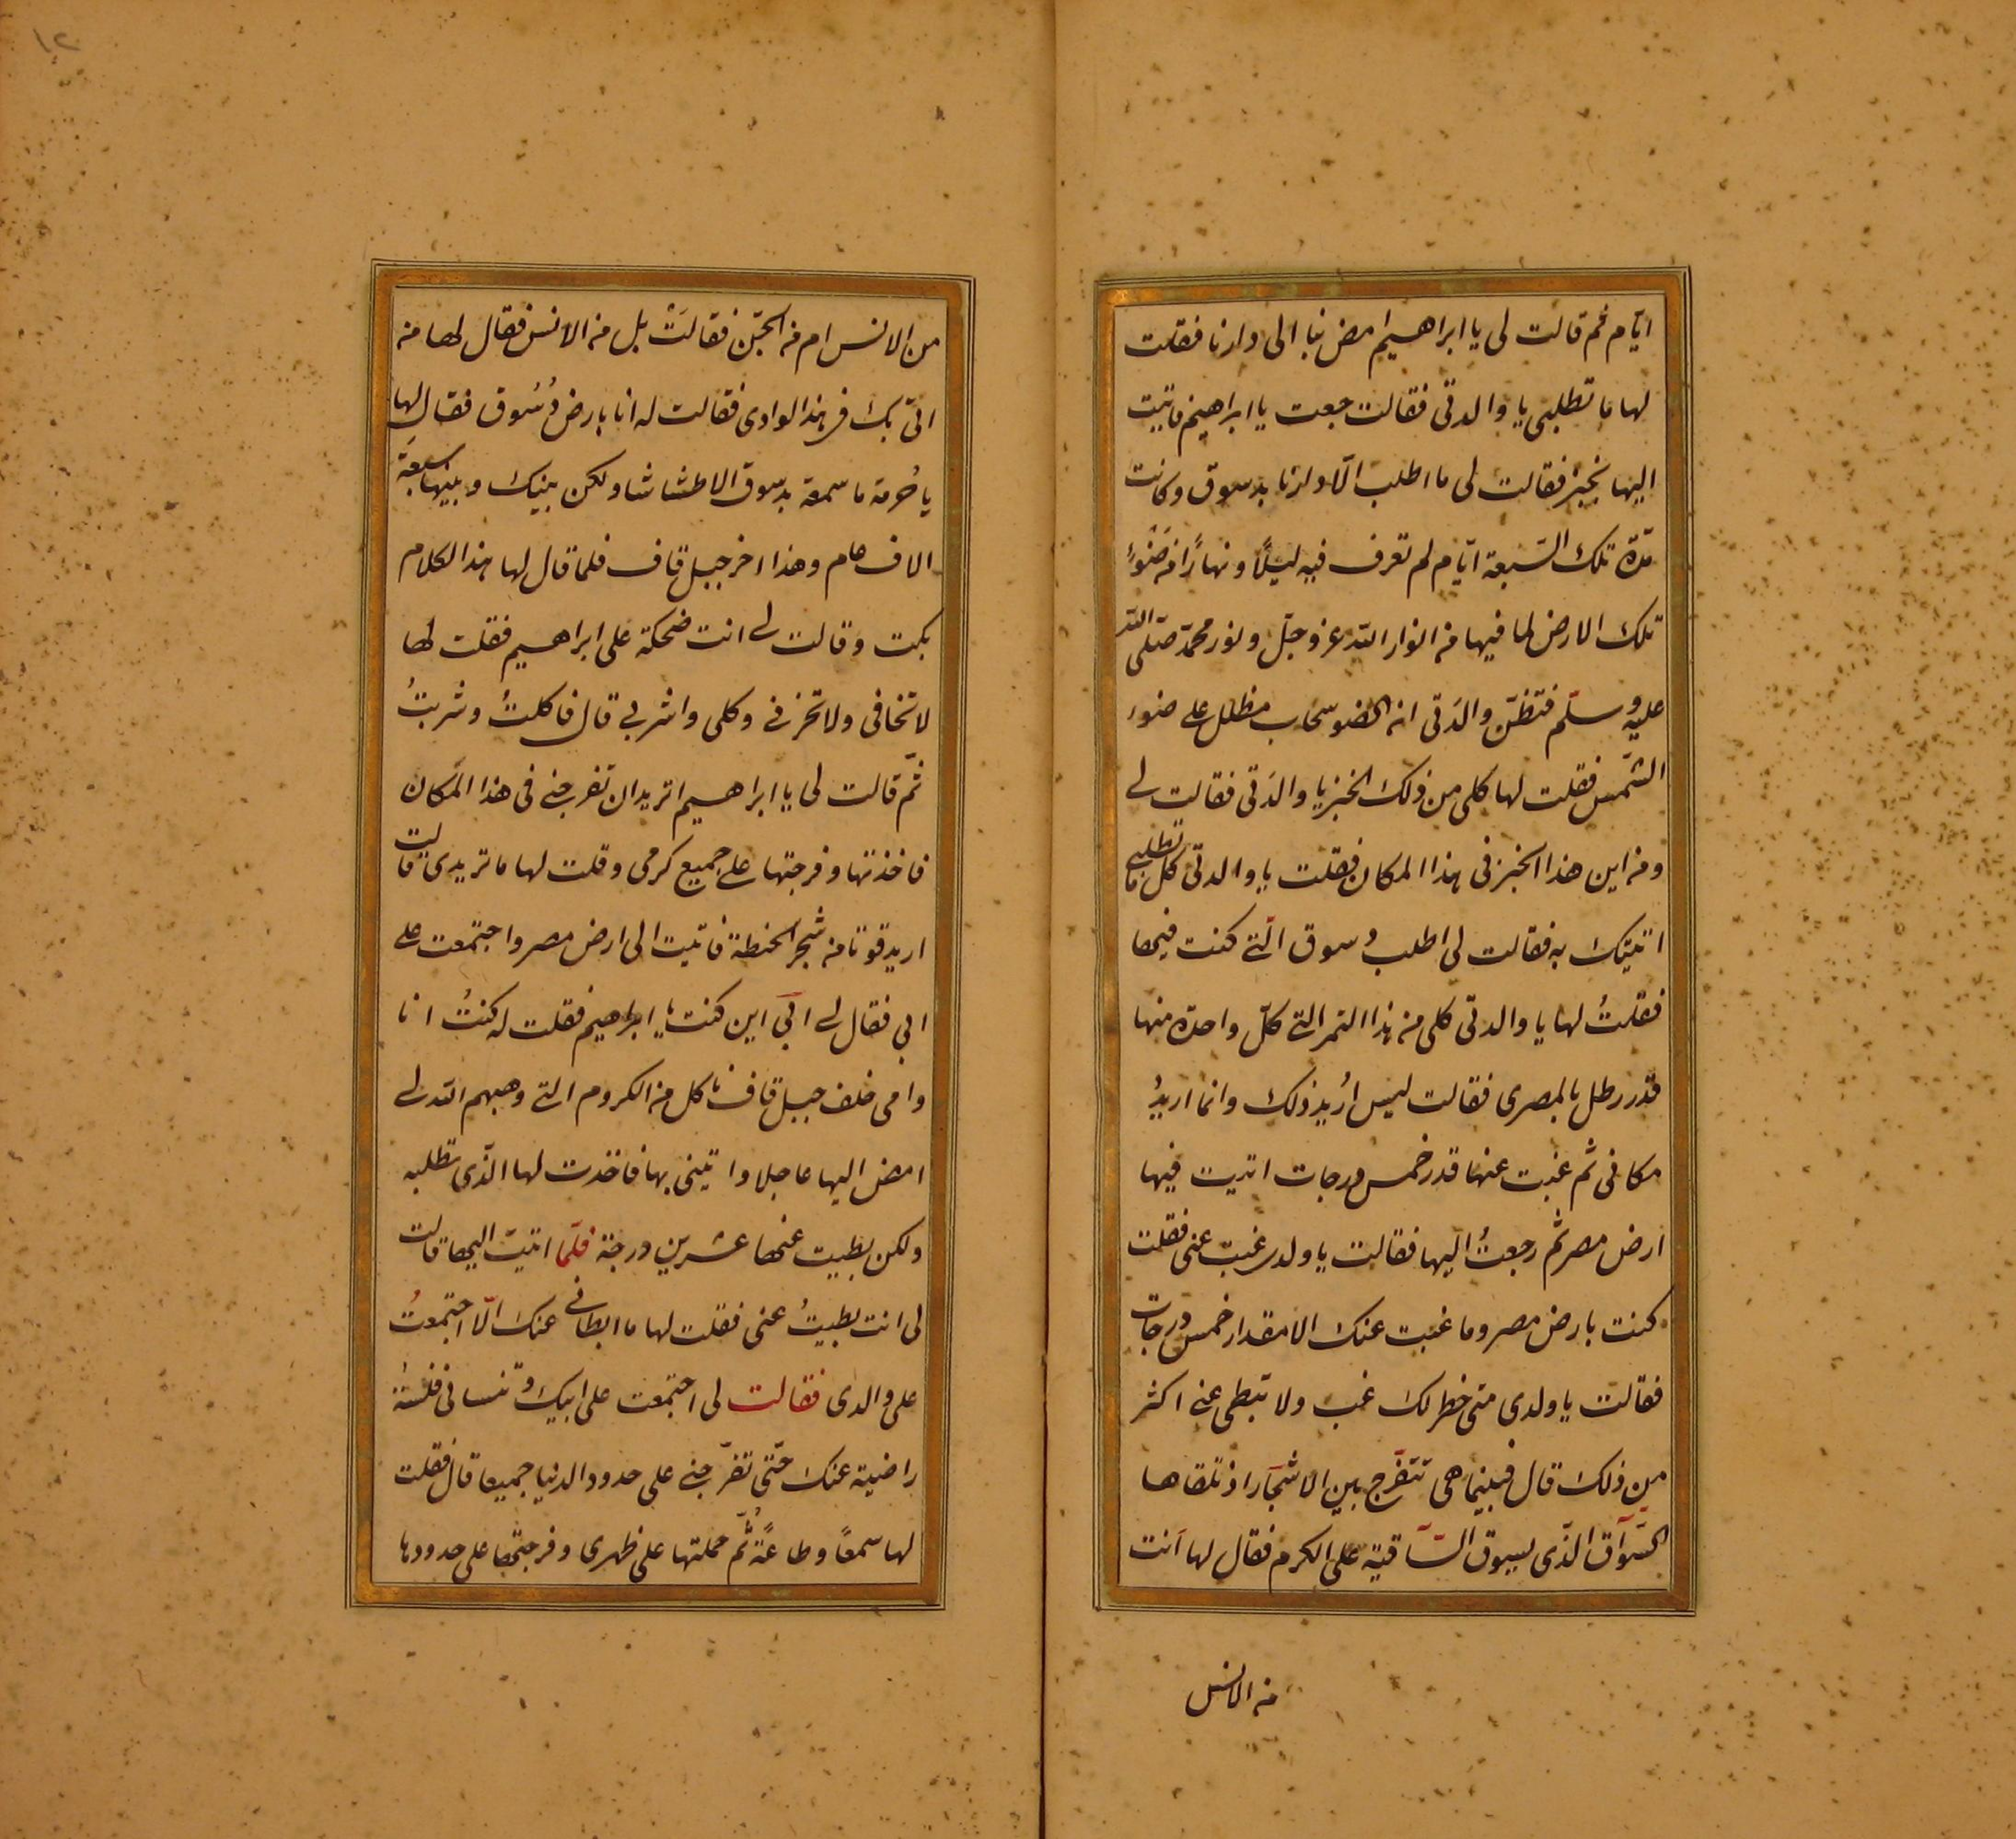 ايّام ثم قالت لى يا ابراهيم امض بنا الى دارنا فقلت
لها ما تطلبى يا والدتى فقالت جعت يا ابراهيم فاتيت
اليها بخبز فقالت لى ما اطلب الّا دارنا بدسوق وكانت
مدّة تلك السّبعة ايّام لم تعرف فيه ليلًا ونهارًا من ضوء
تلك الارض لما فيها من انوار اللّه عز وجلّ ونور محمّد صلّى اللّه
عليه وسلّم فتظنّ والدتى انه الضو سحاب مظلل على ضوء
الشّمس فقلت لها كلى من ذلك الخبز يا والدتى فقالت لى
ومن اين هذا الخبز فى هذا المكان فقلت يا والدتى كل ما تطلبى
اتيتك به فقالت لى اطلب دسوق الّتى كنت فيها
فقلتُ لها يا والدتى كلى من هذا التمر التى كلّ واحدة منها
قدر رطل بالمصرى فقالت ليس اُريد ذلك وانما اريدُ
مكانى ثم غبت عنها قدر خمس درجات اتيت فيها
ارض مصر ثم رجعتُ اليها فقالت يا ولدى غبت عنى فقلت
كنت بارض مصر وما غبت عنك الا مقدار خمس درجات
فقالت يا ولدى متى خطر لك غب ولا تبطى عنى اكثر
من ذلك قال فبينما هى تتفرّج بين الاشجار اذ تلقاها
السّوّاق الذّى يسوق السّاقية على الكرم فقال لها أنت
من الانس
١٢
من الانس ام من الجنّ فقالتْ بل من الانس فقال لها من
اتى بك فى هذا الوادى فقالت له انا بارض دُسُوق فقال لها
يا حُرمة ما سمعة بدسوق الا طشاشا ولكن بينك وبينها سبعة
الاف عام وهذا اخر جبل قاف فلما قال لها هذا الكلام
بكت وقالت لى انت ضحكة على ابراهيم فقلت لها
لا تخافى ولا تحزنى وكلى واشربى قال فاكلتُ وشربتُ
ثمّ قالت لى يا ابراهيم اتريد ان تفرجنى فى هذا المكان
فاخذتها وفرجتها على جميع كرمى وقلت لها ما تريدى قالت
اريد قوتا من شجر الحنطة فاتيت الى ارض مصر واجتمعت على
ابى فقال لى ابى اين كنت يا ابراهيم فقلت له كنتُ انا
وامى خلف جبل قاف ناكل من الكروم التى وهبهم اللّه لى
امض اليها عاجلا واتينى بها فاخذت لها الذّى تطلبه
ولكن بطيت عنها عشرين درجة فلّما اتيت اليها قالت
لى انت بطيتُ عنى فقلت لها ما ابطانى عنك الّا اجتمعتُ
على والدى فقالت لى اجتمعت على ابيك وتنسانى فلستُ
راضية عنك حتّى تفرّجنى على حدود الدنيا جميعا قال فقلت
لها سمعًا وطاعًة ثُمّ حملتها على ظهرى وفرجتها على حدودها